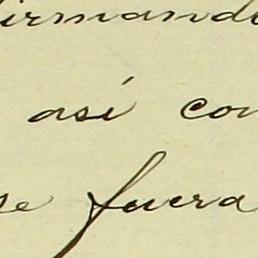 irmando
así con
se fuera